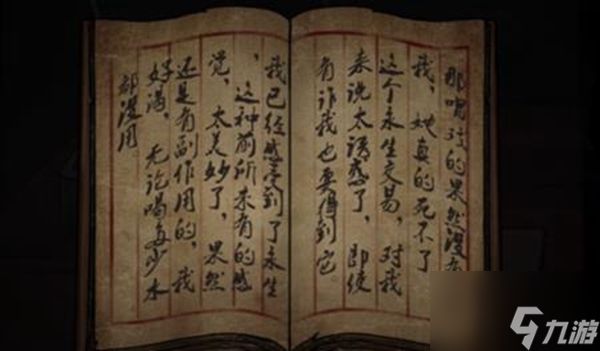 那的果然没
我，她真的死不了
这个永生交易，对我
来说太诱惑了，即使
有诈我也要得到它。
我已经感受到了永生
，这种前所未有的感
觉，太美妙了，果然
还是有副作用的，我
好渴，无论喝多少水
都没用。
九游